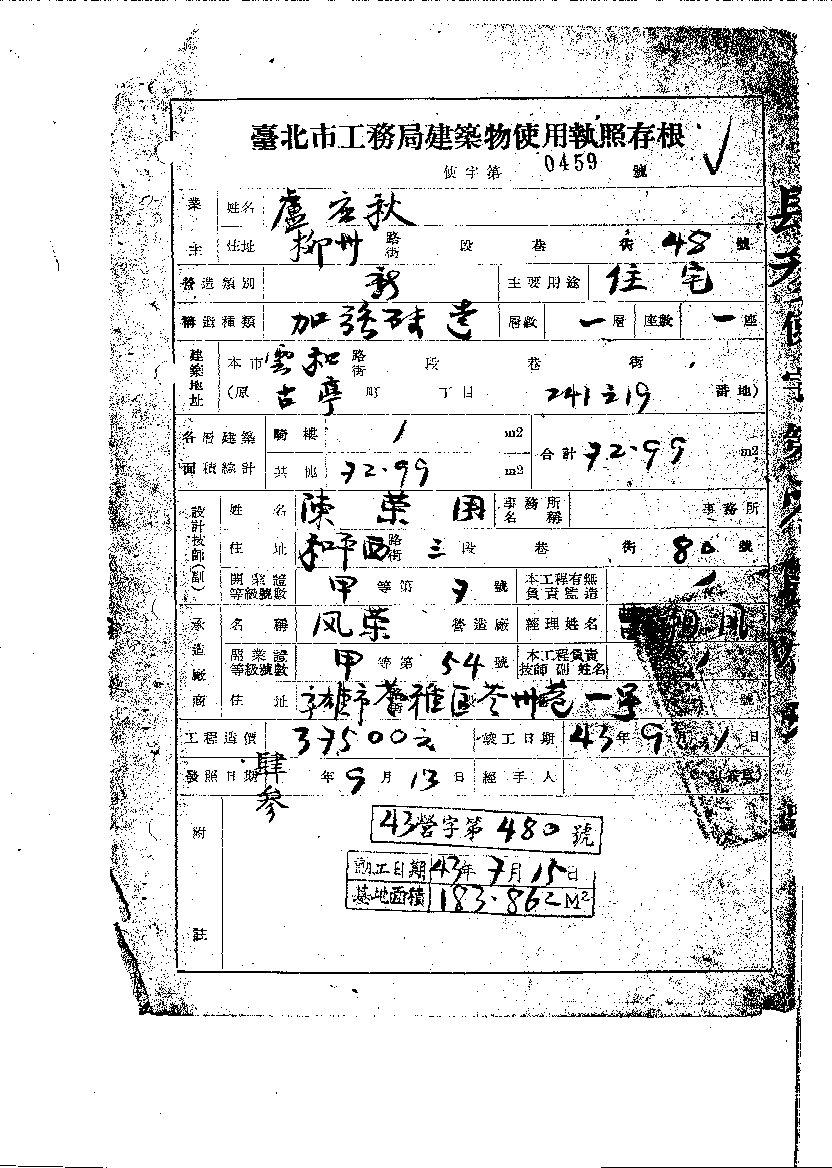 臺北市工務局建築物使用執照存根
使字第 0459 號
業主 姓名 盧 秋
住址 柳州 路街 段 巷 街 48 號
營造類別 新 主要用途 住宅
構造種類 加強磚造 層數 一層 座數 一座
建築地址 本市 雲和 路街 段 巷 街
(原 古亭 町 丁目 241之19 番地)
各層建築面積綜計 騎樓 / m2 合計 72.99 m2
其他 72.99 m2
設計技師(副) 姓名 陳榮周 事務所名稱 事務所
住址 和平西 路街 三 段 巷 街 80 號
開業證等級號數 甲 等第 7 號 本工程有無負責監造 /
承造廠商 名稱 风荣 營造廠 經理姓名
開業證等級號數 甲 等第 54 號 本工程負責技師副姓名 /
住址 高雄市苓雅區苓州巷一号 號
工程造價 37500元 竣工日期 43年9月1日
發照日期 肆參 年9月13日 經手人
附註
43營字第480號
動工日期 43年7月15日
基地面積 183.862M²